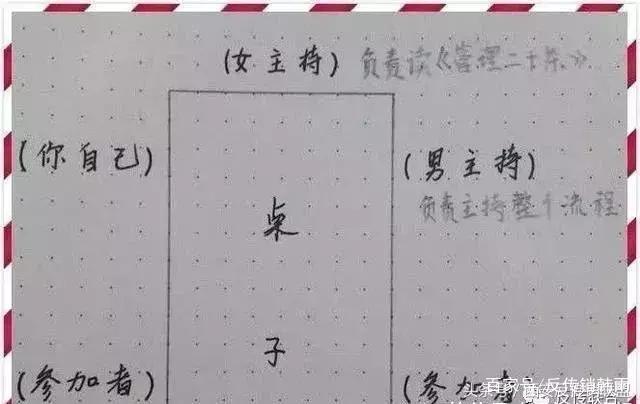 (女主持) 负责读《管理二十条》
(你自己)
(男主持)
负责主持整个流程
桌
子
(参加者)
(参加
百家号/反传销韩雨